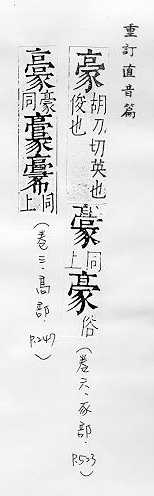 重訂直音篇
豪胡刀切英也俊也 同上 豪俗（卷六.豕部. P.523）
豪同 同上（卷三.高部. P.247）